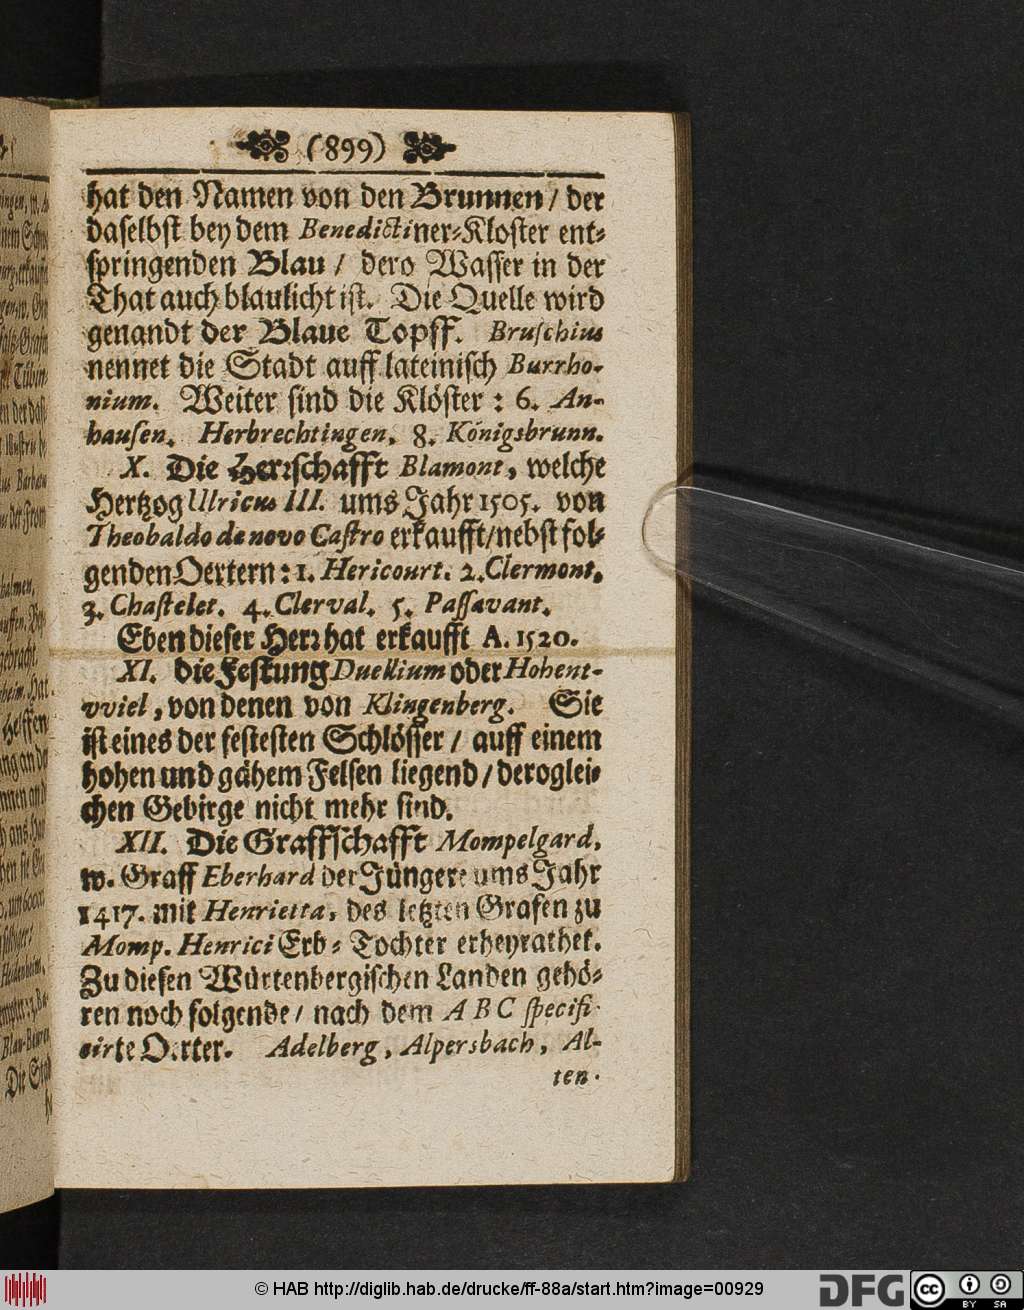 (899)
hat den Namen von den Brunnen / der
daselbst bey dem Benedictiner-Kloster ent-
springenden Blau / dero Wasser in der
That auch blaulicht ist. Die Quelle wird
genandt der Blaue Topff. Bruschius
nennet die Stadt auff lateinisch Burrho-
nium. Weiter sind die Klöster : 6. An-
hausen. Herbrechtingen. 8. Königsbrunn.
X. Die Herrschafft Blamont, welche
Hertzog Ulricus III. ums Jahr 1505. von
Theobaldo de novo Castro erkaufft / nebst fol-
genden Oertern : 1. Hericourt. 2. Clermont.
3. Chastelet. 4. Clerval. 5. Passavant.
Eben dieser Herr hat erkaufft A. 1520.
XI. die Festung Duellium oder Hohent-
vviel, von denen von Klingenberg. Sie
ist eines der festesten Schlösser / auff einem
hohen und gähem Felsen liegend / deroglei-
chen Gebirge nicht mehr sind.
XII. Die Graffschafft Mompelgard,
w. Graff Eberhard der Jüngere ums Jahr
1417. mit Henrietta, des letzten Grafen zu
Momp. Henrici Erb- Tochter erheyrathet.
Zu diesen Würtenbergischen Landen gehö-
ren noch folgende / nach dem A B C specifi-
cirte Oerter. Adelberg, Alpersbach, Al-
ten-
© HAB http://diglib.hab.de/drucke/ff-88a/start.htm?image=00929
DFG
cc BY SA